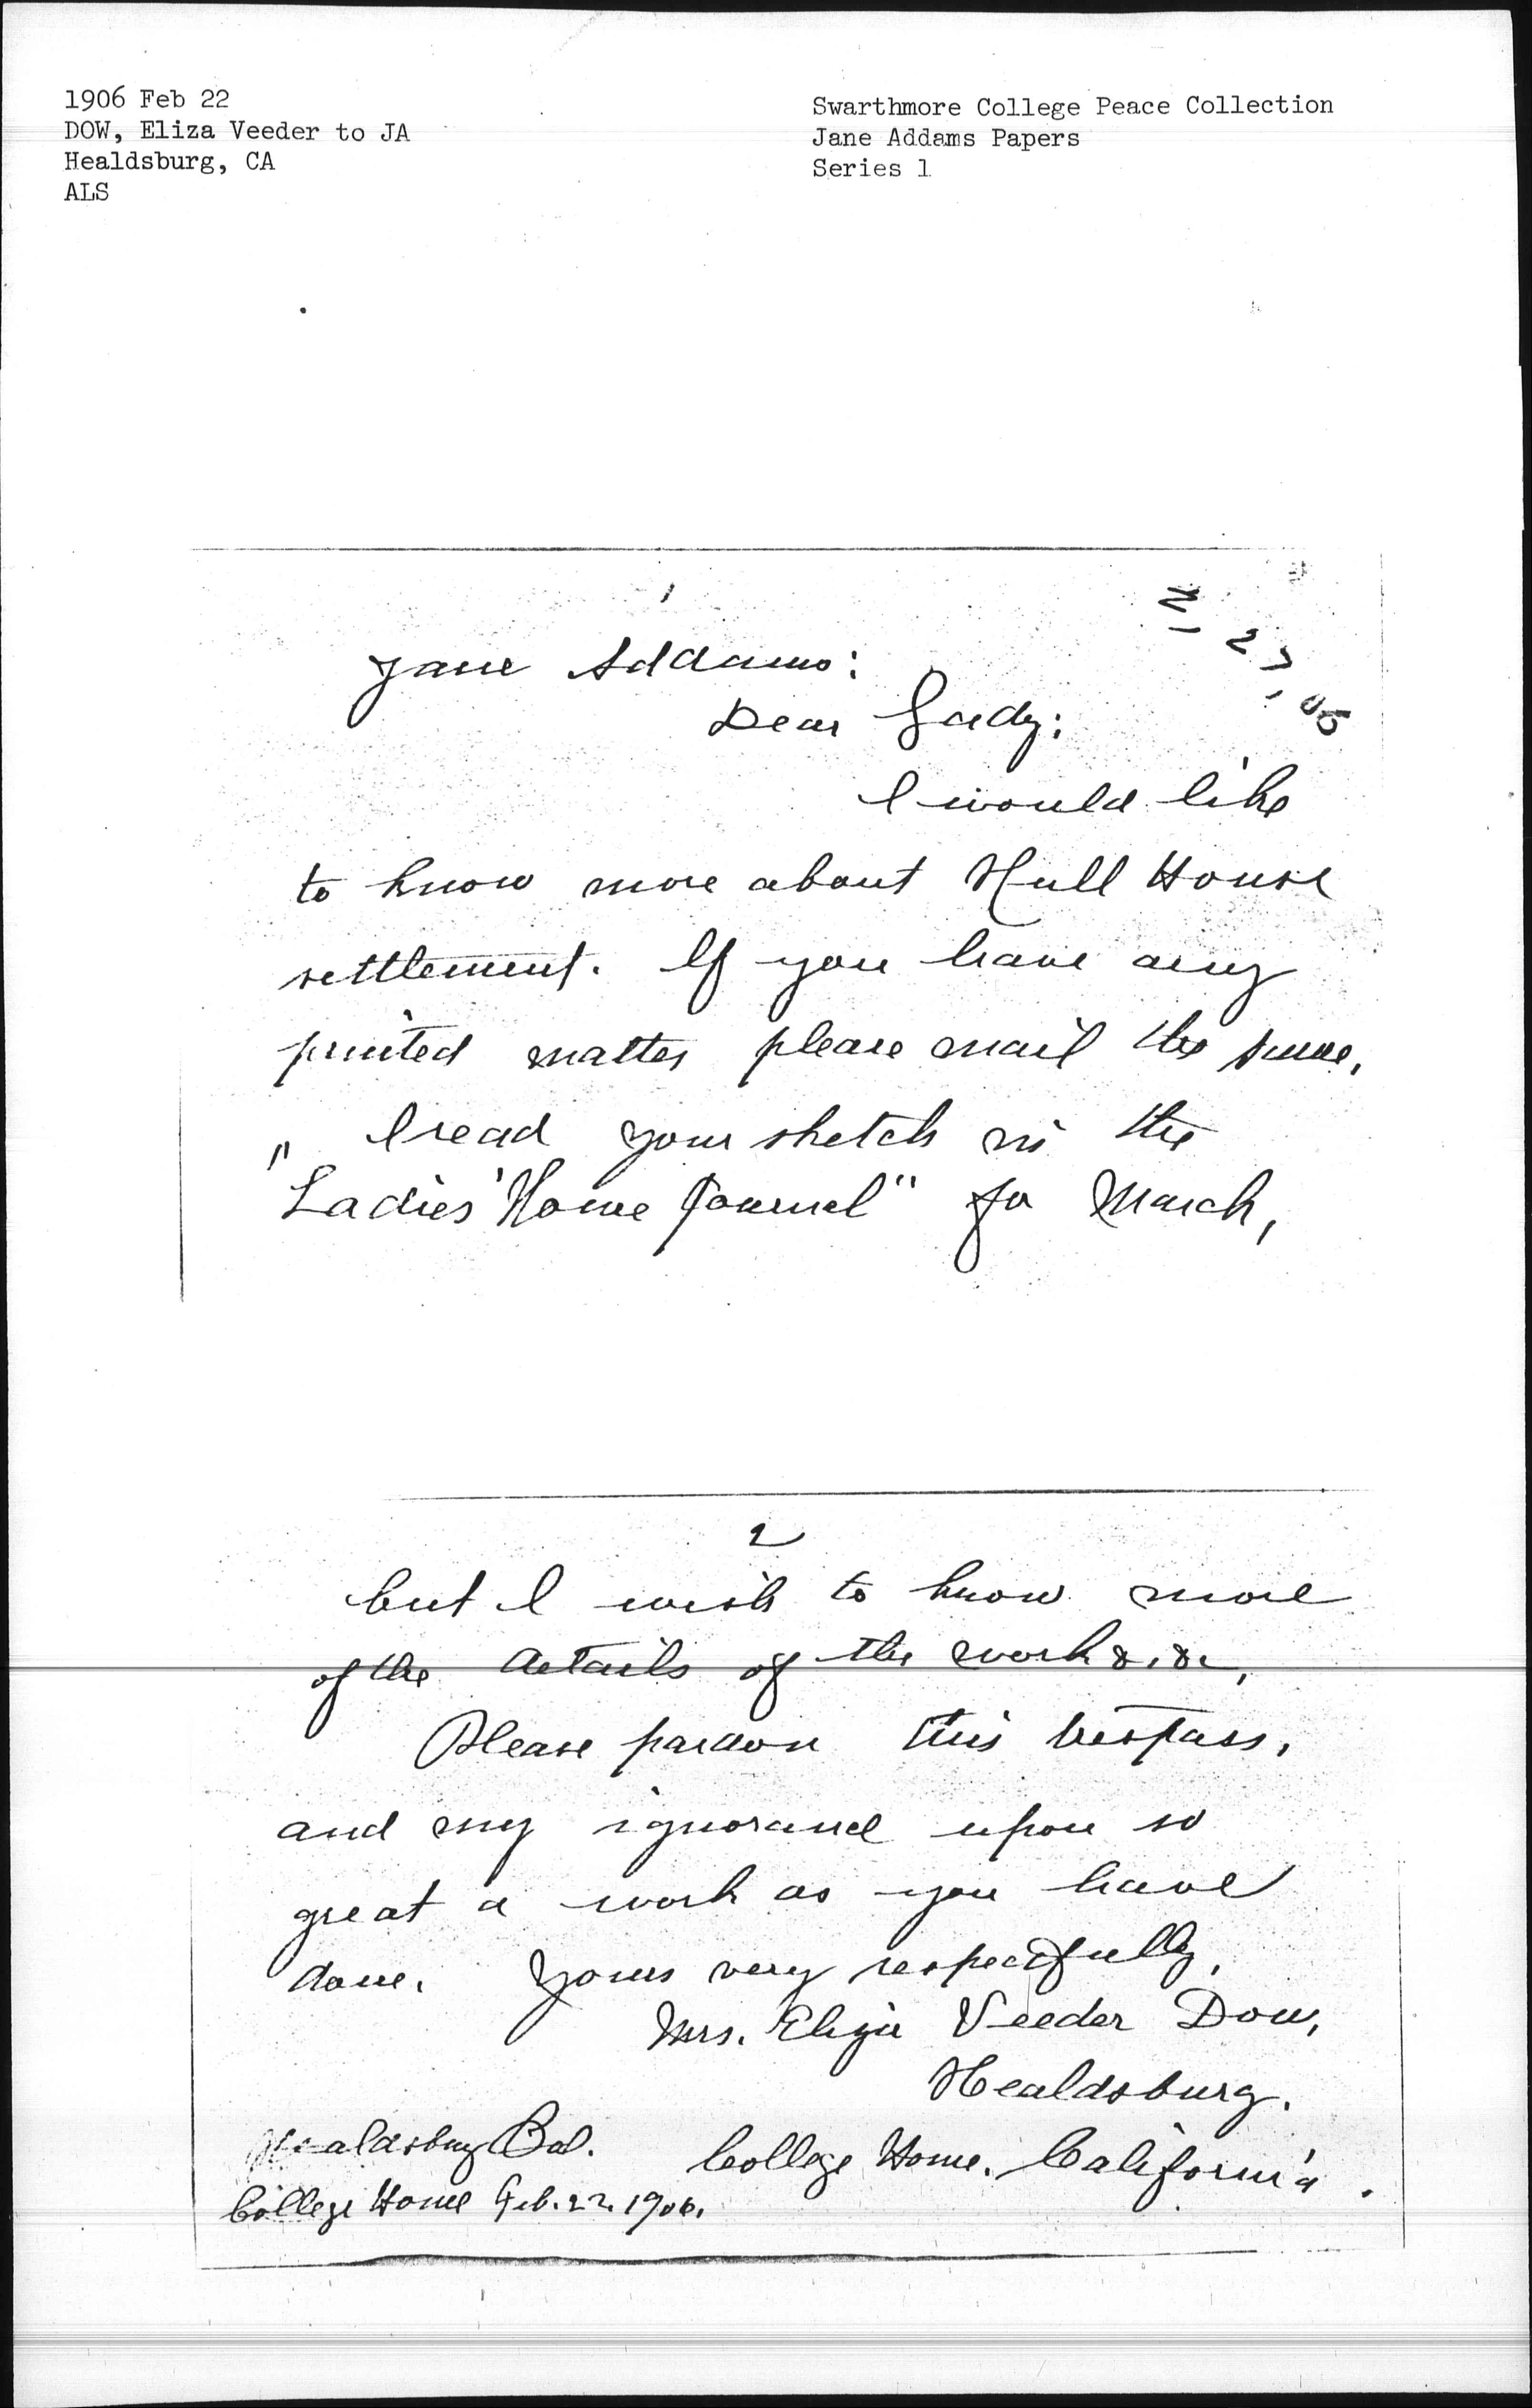 1906 Feb 22
DOW, Eliza Veeder to JA
Healdsburg, CA
ALS
Swarthmore College Peace Collection
Jane Addams Papers
Series 1
1
Jane Addams:
Dear Lady:
I would like
to know more about Hull House
settlement. If you have any
printed matter please mail the same,
I read your sketch in the
"Ladies' Home Journal" for March,
2
but I wish to know more
of the details of the work &. &c,
Please pardon this trespass,
and my ignorance upon so
great a work as you have
done. Yours very respectfully,
Mrs. Eliza Veeder Dow,
Healdsburg.
College Home. California.
Healdsburg Cal.
College Home Feb. 22. 1906.